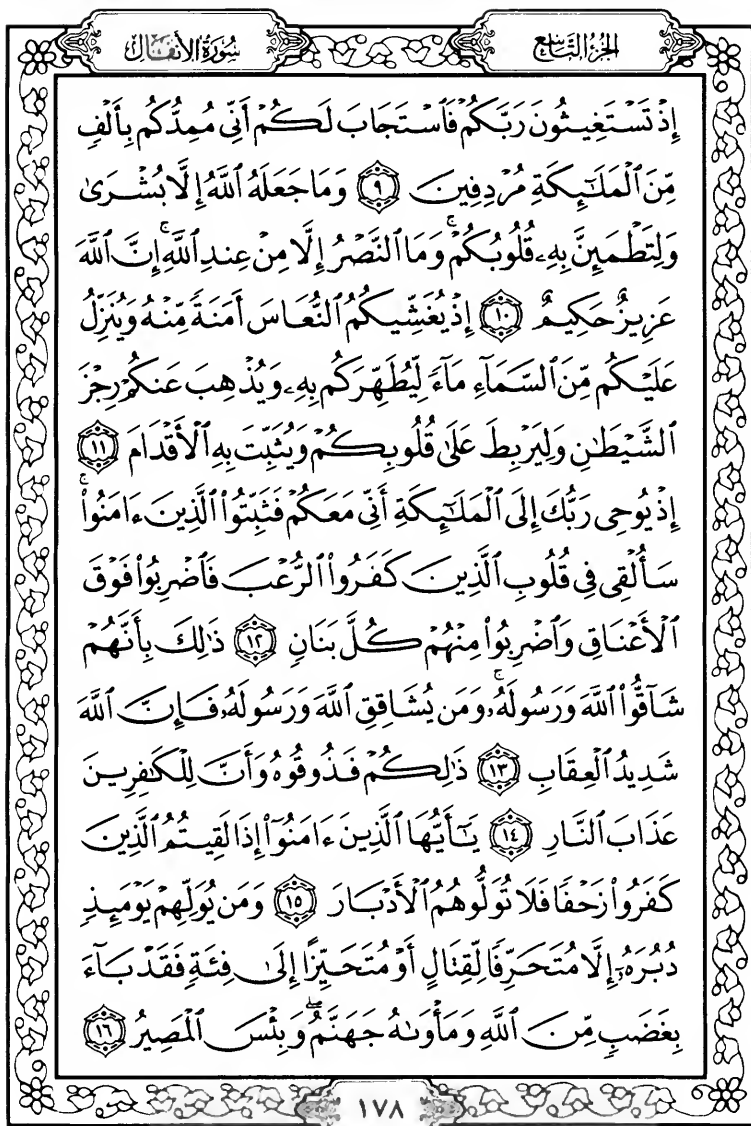 الجزء التاسع
سورة الأنفال
إِذْ تَسْتَغِيثُونَ رَبَّكُمْ فَٱسْتَجَابَ لَكُمْ أَنِّي مُمِدُّكُم بِأَلْفٍ
مِّنَ ٱلْمَلَـٰٓئِكَةِ مُرْدِفِينَ ٩ وَمَا جَعَلَهُ ٱللَّهُ إِلَّا بُشْرَىٰ
وَلِتَطْمَئِنَّ بِهِۦ قُلُوبُكُمْ ۚ وَمَا ٱلنَّصْرُ إِلَّا مِنْ عِندِ ٱللَّهِ ۚ إِنَّ ٱللَّهَ
عَزِيزٌ حَكِيمٌ ١٠ إِذْ يُغَشِّيكُمُ ٱلنُّعَاسَ أَمَنَةً مِّنْهُ وَيُنَزِّلُ
عَلَيْكُم مِّنَ ٱلسَّمَآءِ مَآءً لِّيُطَهِّرَكُم بِهِۦ وَيُذْهِبَ عَنكُمْ رِجْزَ
ٱلشَّيْطَـٰنِ وَلِيَرْبِطَ عَلَىٰ قُلُوبِكُمْ وَيُثَبِّتَ بِهِ ٱلْأَقْدَامَ ١١
إِذْ يُوحِى رَبُّكَ إِلَى ٱلْمَلَـٰٓئِكَةِ أَنِّى مَعَكُمْ فَثَبِّتُوا۟ ٱلَّذِينَ ءَامَنُوا۟ ۚ
سَأُلْقِى فِى قُلُوبِ ٱلَّذِينَ كَفَرُوا۟ ٱلرُّعْبَ فَٱضْرِبُوا۟ فَوْقَ
ٱلْأَعْنَاقِ وَٱضْرِبُوا۟ مِنْهُمْ كُلَّ بَنَانٍ ١٢ ذَٰلِكَ بِأَنَّهُمْ
شَآقُّوا۟ ٱللَّهَ وَرَسُولَهُۥ ۚ وَمَن يُشَاقِقِ ٱللَّهَ وَرَسُولَهُۥ فَإِنَّ ٱللَّهَ
شَدِيدُ ٱلْعِقَابِ ١٣ ذَٰلِكُمْ فَذُوقُوهُ وَأَنَّ لِلْكَـٰفِرِينَ
عَذَابَ ٱلنَّارِ ١٤ يَـٰٓأَيُّهَا ٱلَّذِينَ ءَامَنُوٓا۟ إِذَا لَقِيتُمُ ٱلَّذِينَ
كَفَرُوا۟ زَحْفًا فَلَا تُوَلُّوهُمُ ٱلْأَدْبَارَ ١٥ وَمَن يُوَلِّهِمْ يَوْمَئِذٍ
دُبُرَهُۥٓ إِلَّا مُتَحَرِّفًا لِّقِتَالٍ أَوْ مُتَحَيِّزًا إِلَىٰ فِئَةٍ فَقَدْ بَآءَ
بِغَضَبٍ مِّنَ ٱللَّهِ وَمَأْوَىٰهُ جَهَنَّمُ ۖ وَبِئْسَ ٱلْمَصِيرُ ١٦
١٧٨